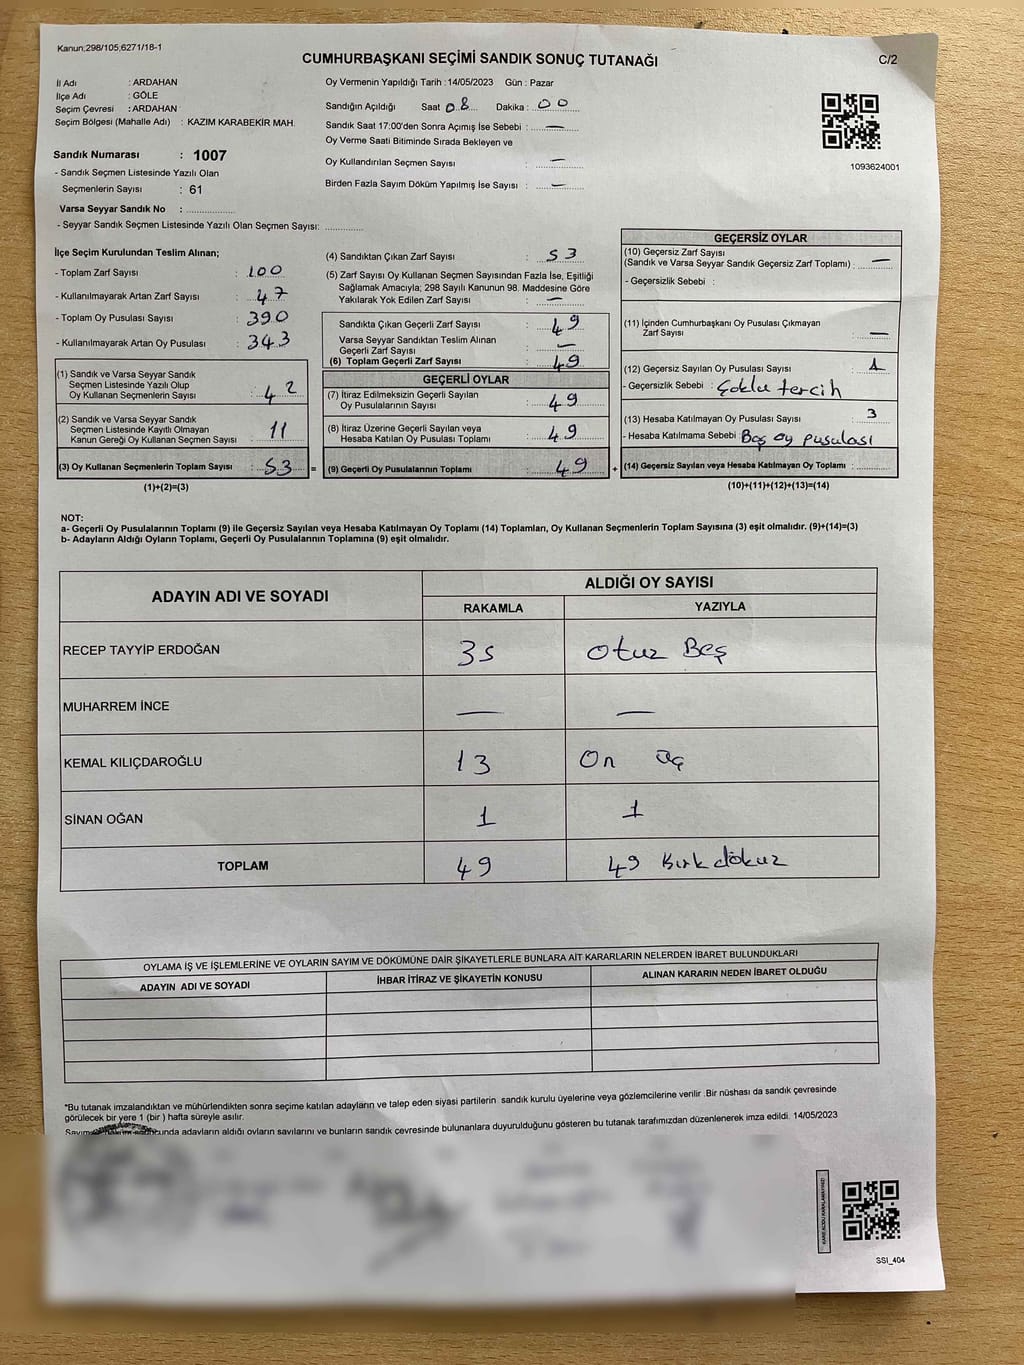 Kanun;298/105;6271/18-1
CUMHURBAŞKANI SEÇİMİ SANDIK SONUÇ TUTANAĞI
C/2
İl Adı : ARDAHAN
İlçe Adı : GÖLE
Seçim Çevresi : ARDAHAN
Seçim Bölgesi (Mahalle Adı) : KAZIM KARABEKİR MAH.
Oy Vermenin Yapıldığı Tarih : 14/05/2023 Gün : Pazar
Sandığın Açıldığı Saat 08 Dakika : 00
Sandık Saat 17:00'den Sonra Açımış İse Sebebi : —
Oy Verme Saati Bitiminde Sırada Bekleyen ve
Oy Kullandırılan Seçmen Sayısı : —
Birden Fazla Sayım Döküm Yapılmış İse Sayısı : —
1093624001
Sandık Numarası : 1007
- Sandık Seçmen Listesinde Yazılı Olan
Seçmenlerin Sayısı : 61
Varsa Seyyar Sandık No :
- Seyyar Sandık Seçmen Listesinde Yazılı Olan Seçmen Sayısı:
İlçe Seçim Kurulundan Teslim Alınan;
- Toplam Zarf Sayısı : 100
- Kullanılmayarak Artan Zarf Sayısı : 47
- Toplam Oy Pusulası Sayısı : 390
- Kullanılmayarak Artan Oy Pusulası : 343
(1) Sandık ve Varsa Seyyar Sandık
Seçmen Listesinde Yazılı Olup
Oy Kullanan Seçmenlerin Sayısı : 42
(2) Sandık ve Varsa Seyyar Sandık
Seçmen Listesinde Kayıtlı Olmayan
Kanun Gereği Oy Kullanan Seçmen Sayısı : 11
(3) Oy Kullanan Seçmenlerin Toplam Sayısı : 53 =
(1)+(2)=(3)
(4) Sandıktan Çıkan Zarf Sayısı : 53
(5) Zarf Sayısı Oy Kullanan Seçmen Sayısından Fazla İse, Eşitliği
Sağlamak Amacıyla; 298 Sayılı Kanunun 98. Maddesine Göre
Yakılarak Yok Edilen Zarf Sayısı : —
Sandıkta Çıkan Geçerli Zarf Sayısı : 49
Varsa Seyyar Sandıktan Teslim Alınan
Geçerli Zarf Sayısı : —
(6) Toplam Geçerli Zarf Sayısı : 49
GEÇERLİ OYLAR
(7) İtiraz Edilmeksizin Geçerli Sayılan
Oy Pusulalarının Sayısı : 49
(8) İtiraz Üzerine Geçerli Sayılan veya
Hesaba Katılan Oy Pusulası Toplamı : 49
(9) Geçerli Oy Pusulalarının Toplamı : 49 +
GEÇERSİZ OYLAR
(10) Geçersiz Zarf Sayısı
(Sandık ve Varsa Seyyar Sandık Geçersiz Zarf Toplamı) : —
- Geçersizlik Sebebi :
(11) İçinden Cumhurbaşkanı Oy Pusulası Çıkmayan
Zarf Sayısı : —
(12) Geçersiz Sayılan Oy Pusulası Sayısı : 1
- Geçersizlik Sebebi : Çoklu tercih
(13) Hesaba Katılmayan Oy Pusulası Sayısı : 3
- Hesaba Katılmama Sebebi : Boş oy pusulası
(14) Geçersiz Sayılan veya Hesaba Katılmayan Oy Toplamı :
(10)+(11)+(12)+(13)=(14)
NOT:
a- Geçerli Oy Pusulalarının Toplamı (9) ile Geçersiz Sayılan veya Hesaba Katılmayan Oy Toplamı (14) Toplamları, Oy Kullanan Seçmenlerin Toplam Sayısına (3) eşit olmalıdır. (9)+(14)=(3)
b- Adayların Aldığı Oyların Toplamı, Geçerli Oy Pusulalarının Toplamına (9) eşit olmalıdır.
ADAYIN ADI VE SOYADI
ALDIĞI OY SAYISI
RAKAMLA YAZIYLA
RECEP TAYYİP ERDOĞAN 35 otuz Beş
MUHARREM İNCE — —
KEMAL KILIÇDAROĞLU 13 On üç
SİNAN OĞAN 1 1
TOPLAM 49 49 Kırk dokuz
OYLAMA İŞ VE İŞLEMLERİNE VE OYLARIN SAYIM VE DÖKÜMÜNE DAİR ŞİKAYETLERLE BUNLARA AİT KARARLARIN NELERDEN İBARET BULUNDUKLARI
ADAYIN ADI VE SOYADI İHBAR İTİRAZ VE ŞİKAYETİN KONUSU ALINAN KARARIN NEDEN İBARET OLDUĞU
*Bu tutanak imzalandıktan ve mühürlendikten sonra seçime katılan adayların ve talep eden siyasi partilerin sandık kurulu üyelerine veya gözlemcilerine verilir .Bir nüshası da sandık çevresinde
görülecek bir yere 1 (bir ) hafta süreyle asılır.
adayların aldığı oyların sayılarını ve bunların sandık çevresinde bulunanlara duyurulduğunu gösteren bu tutanak tarafımızdan düzenlenerek imza edildi. 14/05/2023
SSI_404